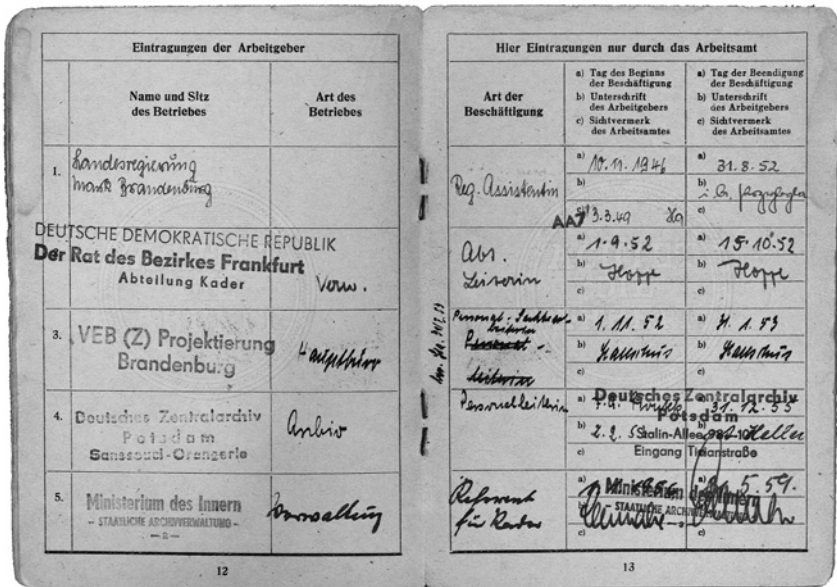 Eintragungen der Arbeitgeber
Name und Sitz
des Betriebes
Art des
Betriebes
1.
Landesregierung
Mark Brandenburg
DEUTSCHE DEMOKRATISCHE REPUBLIK
Der Rat des Bezirkes Frankfurt
Abteilung Kader
Verw.
3.
VEB (Z) Projektierung
Brandenburg
Hauptbüro
4.
Deutsches Zentralarchiv
Potsdam
Sanssouci-Orangerie
Archiv
5.
Ministerium des Innern
- STAATLICHE ARCHIVVERWALTUNG -
Verwaltung
12
Hier Eintragungen nur durch das Arbeitsamt
Art der
Beschäftigung
a) Tag des Beginns
der Beschäftigung
b) Unterschrift
des Arbeitgebers
c) Sichtvermerk
des Arbeitsamtes
a) Tag der Beendigung
der Beschäftigung
b) Unterschrift
des Arbeitgebers
c) Sichtvermerk
des Arbeitsamtes
Reg. Assistentin
a) 10.11.1946
b)
3.3.49
a) 31.8.52
b)
c)
Abt.
Leiterin
a) 1.9.52
b) Hoppe
c)
a) 15.10.52
b) Hoppe
c)
a) 1.11.52
b)
c)
a) 31.1.53
b)
c)
Personalleiterin
Deutsches Zentralarchiv
Potsdam
a)
b) 2.2.5
c)
a) 31.12.55
Stalin-Allee
Eingang Tizianstraße
Referent
für Kader
Ministerium des Innern
STAATLICHE
5.59.
c)
c)
13